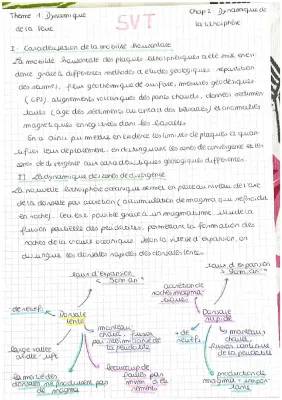 Thème 1 Dynamique
de la Terre
SVT
Chap 2 Dynamique de
la lithosphère
I - Caractérisation de la mobilité horizontale
La mobilité horizontale des plaques lithosphériques a été mise en évi-
dence grâce à différentes méthodes d'études géologiques : répartition
des séismes, flux géothermique de surface, mesures géodésiques
(GPS), alignements volcaniques des points chauds, données sédimen-
taires (âge des sédiments au contact des basaltes) et anomalies
magnétiques enregistrées dans les basaltes.
On a ainsi pu mettre en évidence les limites de plaques et quan-
tifier leur déplacement, en distinguant les zones de convergence et les
zones de divergence aux caractéristiques géologiques différentes.
II La dynamique des zones de divergence
La nouvelle lithosphère océanique se met en place au niveau de l'axe
de la dorsale par accrétion (accumulation de magma qui refroidit
en roche). Ceci est possible grâce à un magmatisme issu de la
fusion partielle des péridotites, permettant la formation des
roches de la croûte océanique. Selon la vitesse d'expansion, on
distingue les dorsales rapides des dorsales lentes.
taux d'expansion
< 5cm.an⁻¹
taux d'expansion
> 5cm.an⁻¹
accrétion de
roches magma-
tiques
Dorsale
lente
Dorsale
rapide
manteau
chaud, fusion
de la péridotite
manteau
chaud,
fusion continue
de la péridotite
large vallée
axiale : rift
beaucoup de
failles
la moitié des
dorsales ne produisent pas
de magma
production de
magma impor-
tante